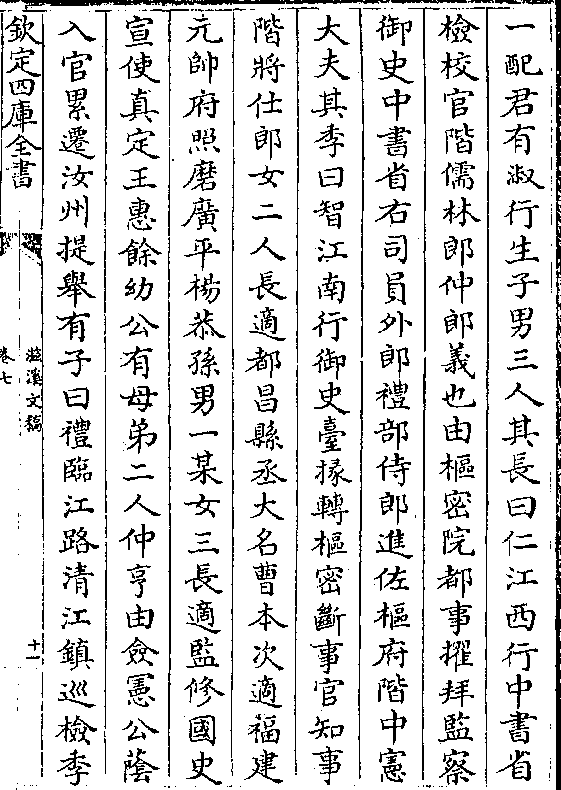 一配君有淑行生子男三人其長曰仁江西行中書省
檢校官階儒林郎仲郎義也由樞密院都事擢拜監察
御史中書省右司員外郎禮部侍郎進佐樞府階中憲
大夫其季曰智江南行御史臺掾轉樞密斷事官知事
階將仕郎女二人長適都昌縣丞大名曹本次適福建
元帥府照磨廣平楊恭孫男一某女三長適監修國史
宣使真定王惠餘幼公有母弟二人仲亨由僉憲公蔭
入官累遷汝州提舉有子曰禮臨江路清江鎮巡檢季
欽定四庫全書
滋溪文稿
卷七
十一